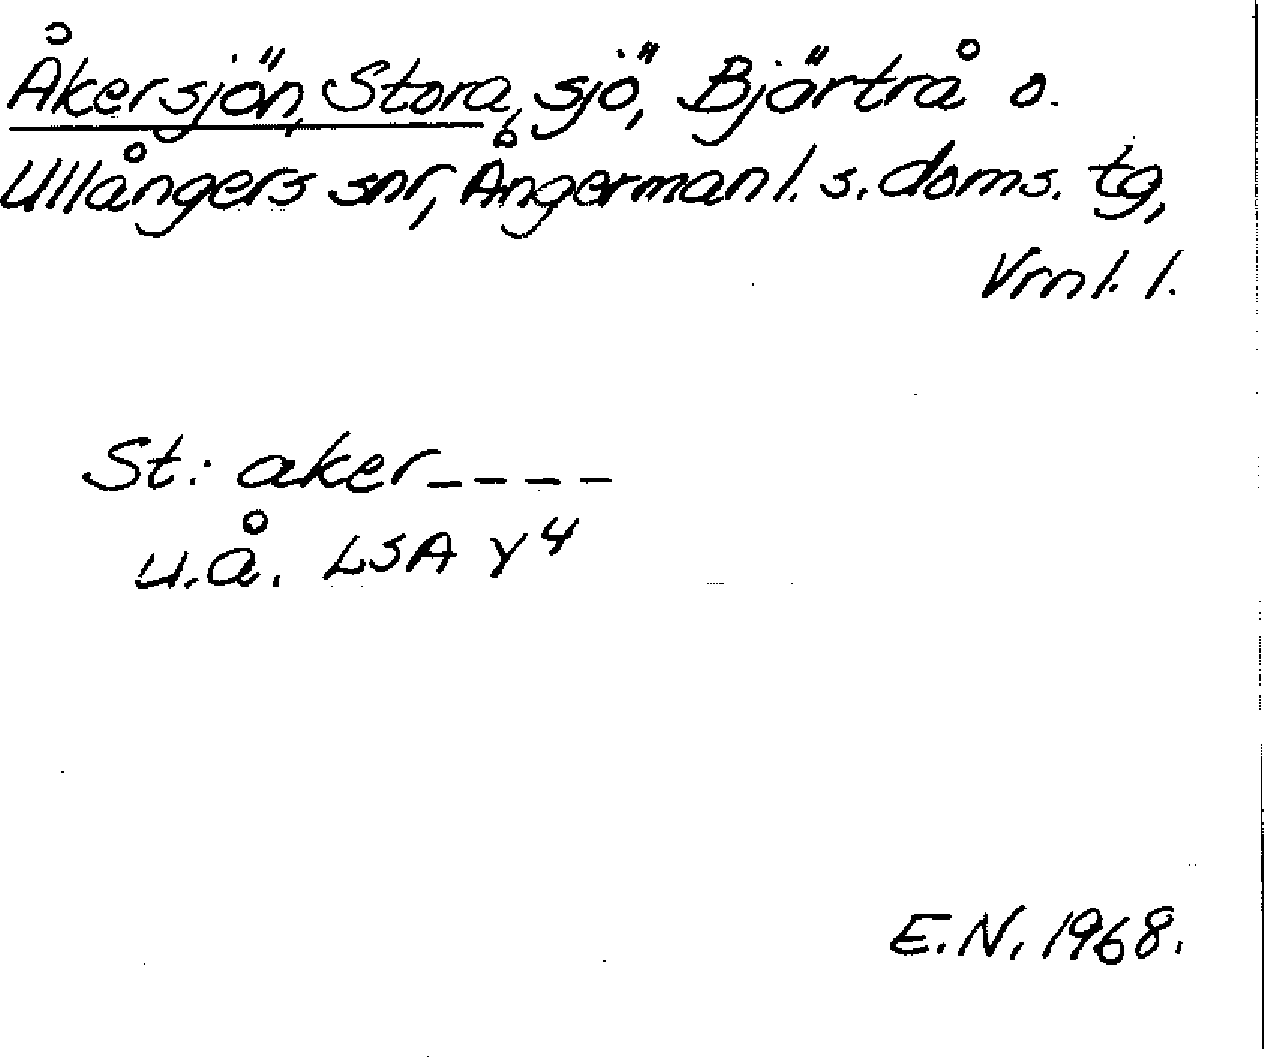 Åkersjön, Stora, sjö, Björtrå o.
Ullångers snr, Ångermanl. s. doms. tg,
Vrnl. l.
St: aker_ _ _ _ _
u.å. LSA Y4
E.N. 1968.